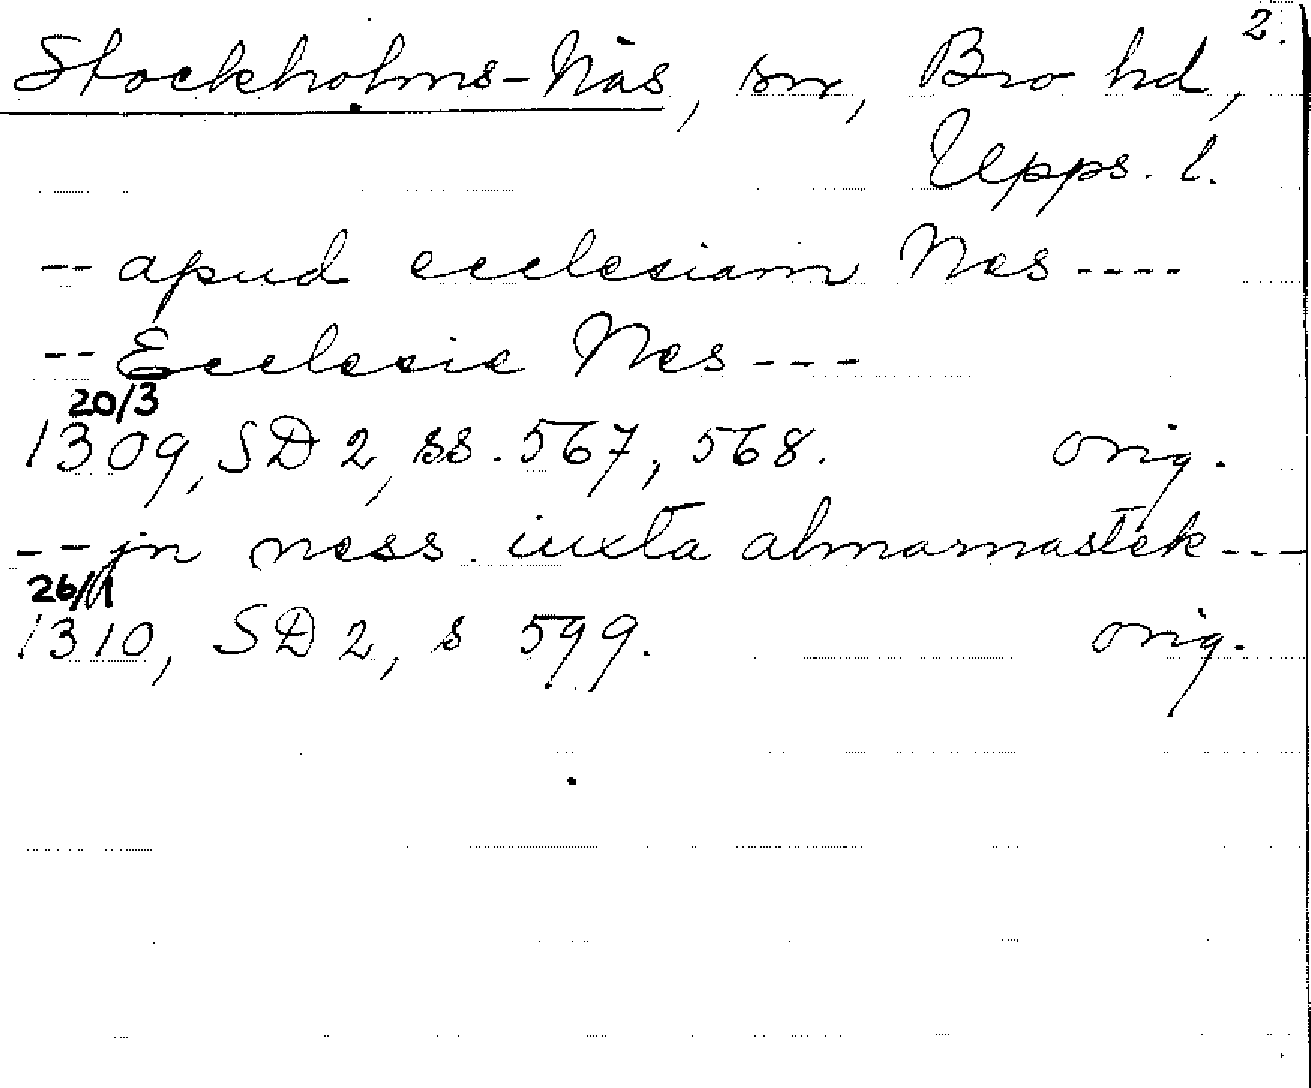 2.
Stockholms-Näs, sn, Bro hd,
Upps. l.
-- apud ecclesiam Nes ----
-- Ecclesie Nes ---
20/3
1309, SD 2, ss. 567, 568. orig.
-- jn ness. iuxta almarnastek ---
26/1
1310, SD 2, s 599. orig.